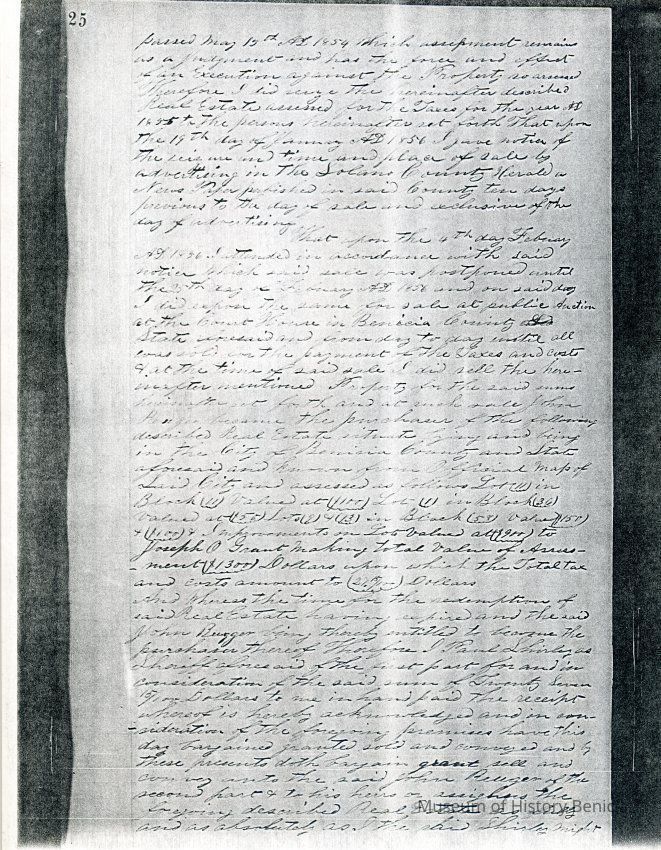 25
passed May 15th AD 1854 Which assessment remains
as a judgment and has the force and effect
of an Execution against the Property so assessed
Therefore I did seize the hereinafter described
Real Estate assessed for the Taxes for the year AD
1855 to the persons hereinafter set forth That upon
the 19th day of January AD 1856 I gave notice of
the seizure and time and place of sale by
advertising in The Solano County Herald a
News Paper published in said County ten days
previous to the day of sale and exclusive of the
day of advertising
That upon the 4th day Febuary
AD 1856 I attended in accordance with said
notice Which said sale was postponed until
the 25th day of Febuary AD 1856 and on said day
I did expose the same for sale at public Auction
at the Court House in Benicia County
State aforesaid and from day to day until all
was sold for the payment of the Taxes and costs
& at the time of said sale I did sell the here-
inafter mentioned Property for the said sums
hereinafter set forth and at such sale John
became the purchaser of the following
described Real Estate situate lying and being
in the City of Benicia County and State
aforesaid and known from Official Map of
Said City and assessed as follows Lot (11) in
Block (11) Valued at ($100) Lot (1) in Block (36)
Valued at Lots in Block Valued ($150)
& Improvements on Lots Valued at ($900) to
Joseph P Grant making total Value of Assess-
-ment ($1300) Dollars upon which the Total tax
and costs amount to Dollars
And Whereas the time for the redemption of
said Real Estate having expired and the said
John being thereby entitled to become the
purchaser thereof Therefore I Paul Shirley as
Sheriff aforesaid of the first part for and in
consideration of the said sum of Twenty Seven
Dollars to me in hand paid the receipt
whereof is hereby acknowledged and in con-
-sideration of the foregoing premises have this
day bargained granted sold and conveyed and by
these presents doth bargain grant sell and
convey unto the said John of the
second part & to his heirs or assigns the
foregoing described Real
and as absolutely as I the said Shirley might
Museum of History Benic